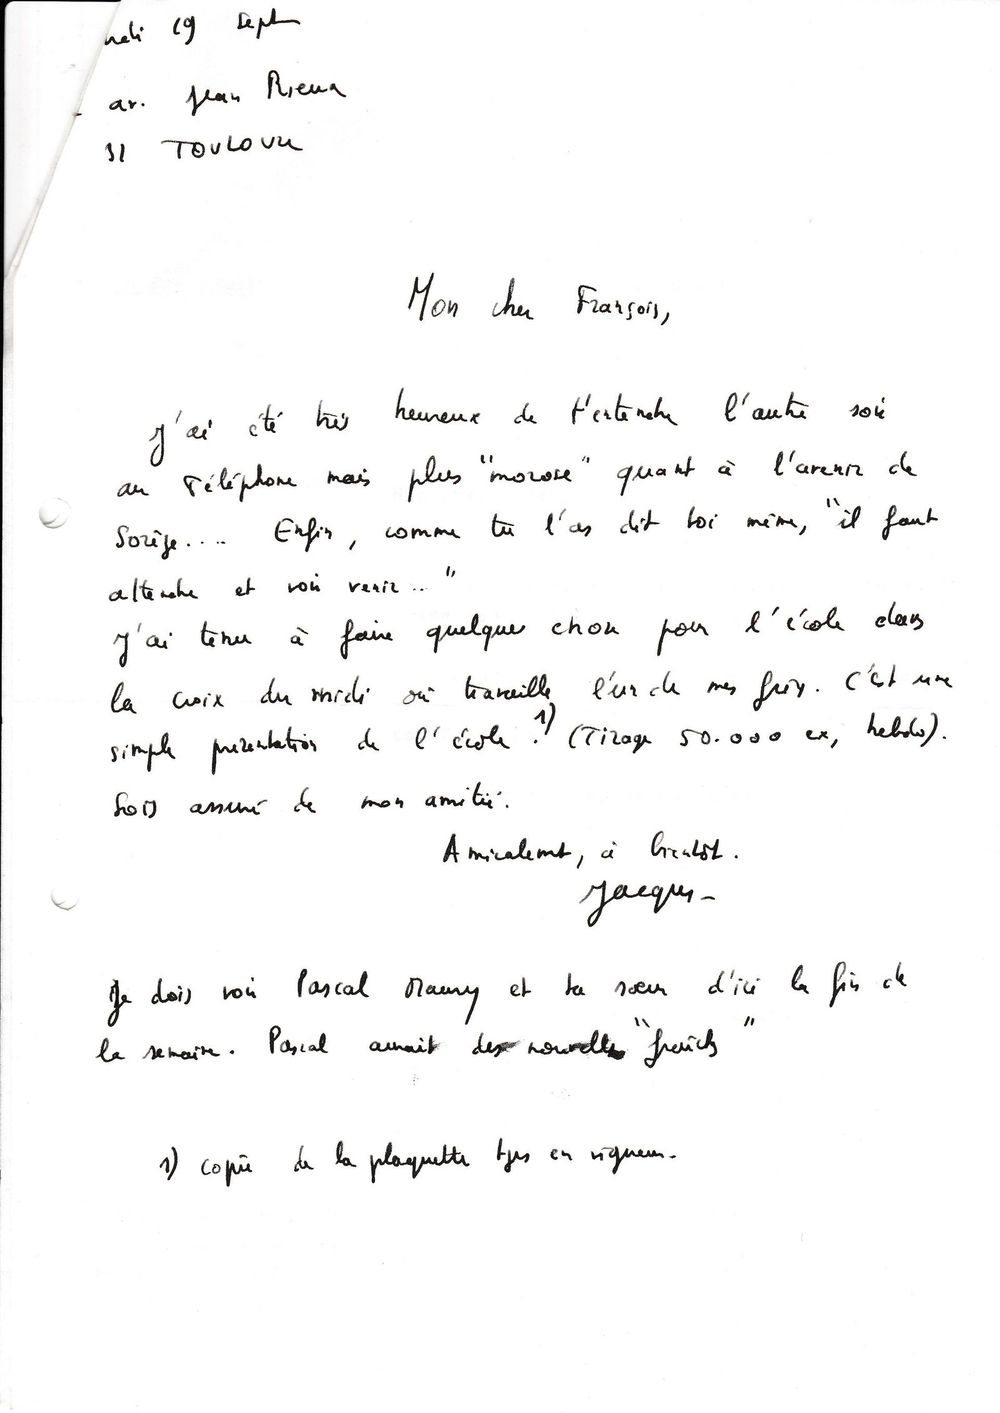 19 Sept
av. Jean Rieux
31 TOULOUSE
Mon cher François,
J'ai été très heureux de t'entendre l'autre soir
au Téléphone mais plus "morose" quant à l'avenir de
Sorèze.... Enfin, comme tu l'as dit toi même, "il faut
attendre et voir venir..."
J'ai tenu à faire quelque chose pour l'école dans
la croix du midi où travaille l'un de mes frères. C'est une
simple présentation de l'école. 1) (Tirage 50.000 ex, hebdo).
Sois assuré de mon amitié.
Amicalement, à bientôt.
Jacques-
Je dois voir Pascal Maury et ta sœur d'ici la fin de
la semaine. Pascal aurait des nouvelles "fraîches"
1) copie de la plaquette tjrs en vigueur.